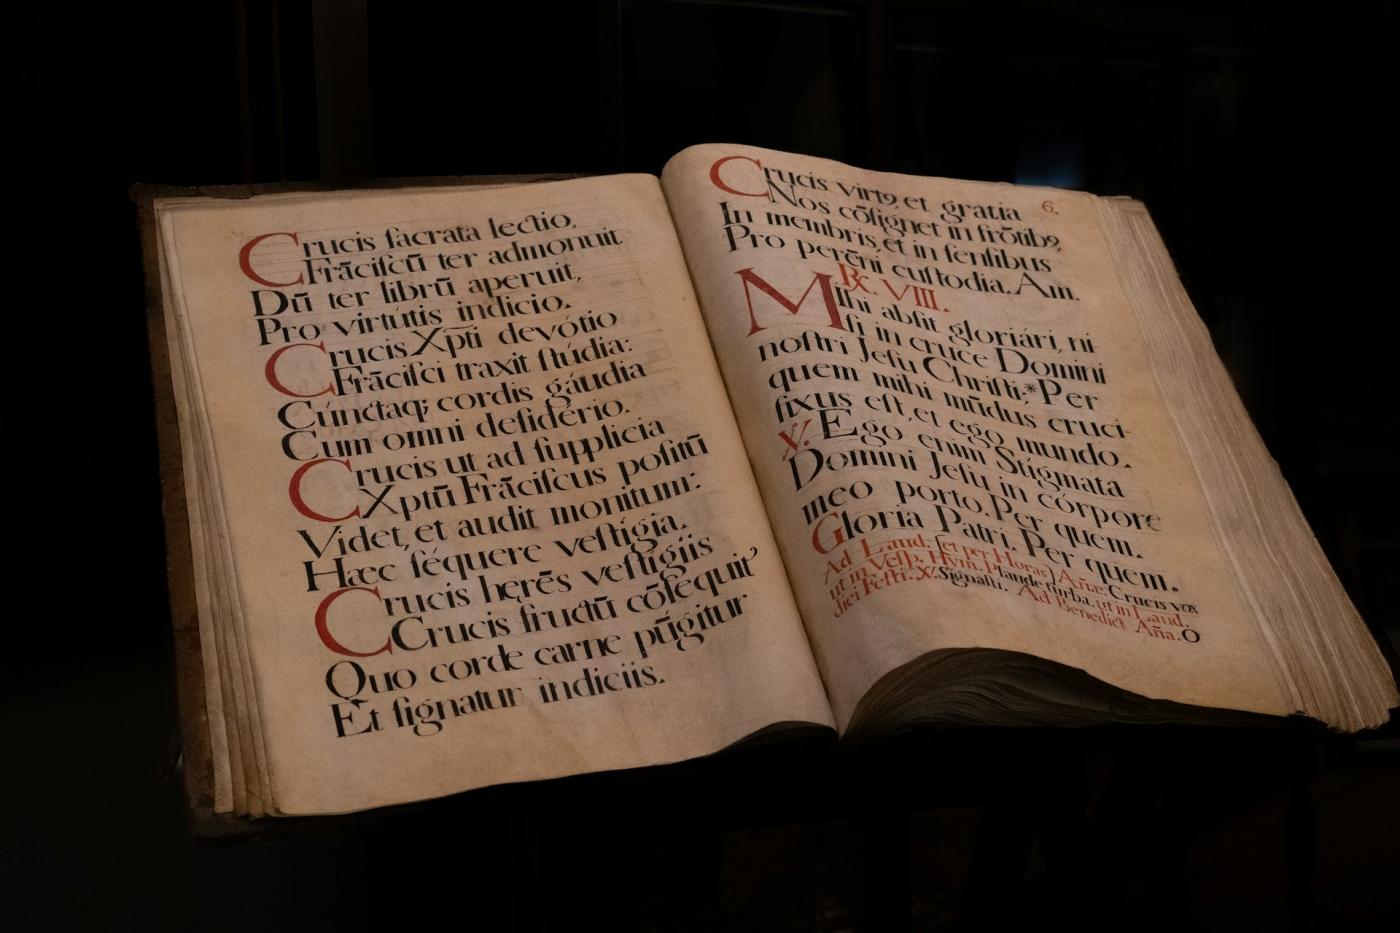 Crucis ſacrata lectio,
Frāciſcū ter admonuit
Dū ter librū aperuit,
Pro virtútis indicio.
Crucis Xp̄ti devótio
Frāciſci traxit ſtúdia:
Cúnctaq; cordis gáudia
Cum omni deſidério.
Crucis ut ad ſupplicia
Xptū Frāciſcus poſitū
Videt, et audit monitum:
Hæc ſéquere veſtígia.
Crucis hęrēs veſtigiis
Crucis fructū cōſéquit'
Quo corde carne pūgitur
Et ſignatur indiciis.
Crucis virtꝰ, et gratia 6.
Nos cōſignet in frōtibꝰ,
In membris, et in ſenſibus
Pro perēni cuſtodia. Am.
℟. VIII.
Mihi abſit gloriári, ni
ſi in cruce Domini
noſtri Jeſu Chriſti: * Per
quem mihi mūdus cruci-
fixus eſt, et ego mundo.
℣. Ego enim Stígmata
Domini Jeſu in córpore
meo porto. Per quem.
Gloria Patri. Per quem.
Ad Laud. ſet per Horas) Añæ. Crucis vox
ut in Veſp. Hym. Plaude turba. ut in Laud.
diei Feſti. ℣. Signaſti. Ad Benedict Aña. O